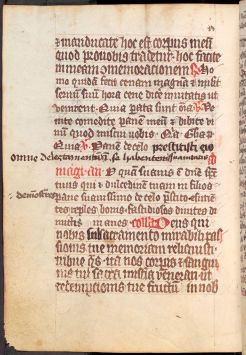 & manducate hoc est corpus meū
quod pro vobis tradetur hoc facite
in meam cōmemorationem Ho
mo quidā fecit cenam magnā & misit
servū suū hora cene dicē invitatis ut
venirent Quia parata sunt oīa Ve
nite comedite panē meū & bibite vi
nū quod miscui vobis Q̄a Gl̄a p̄
Panē de celo prestitisti eis
omne delectamentum se habentem suavitatis
magnificat O quā suavis ē dn̄e sp̄s
tuus qui ut dulcedinē tuam in filios
demonstrares
pane suavissimo de celo p̄stito esurien
tes reples bonis fastidiosos divites di
mittēs inanes collecta Deus qui
nobis sub sacramento mirabili pas
sionis tue memoriam reliquisti
tribue q̄s ita nos corporis & sangui
nis tui sacra misteria venerari ut
redemptionis tue fructū in nob